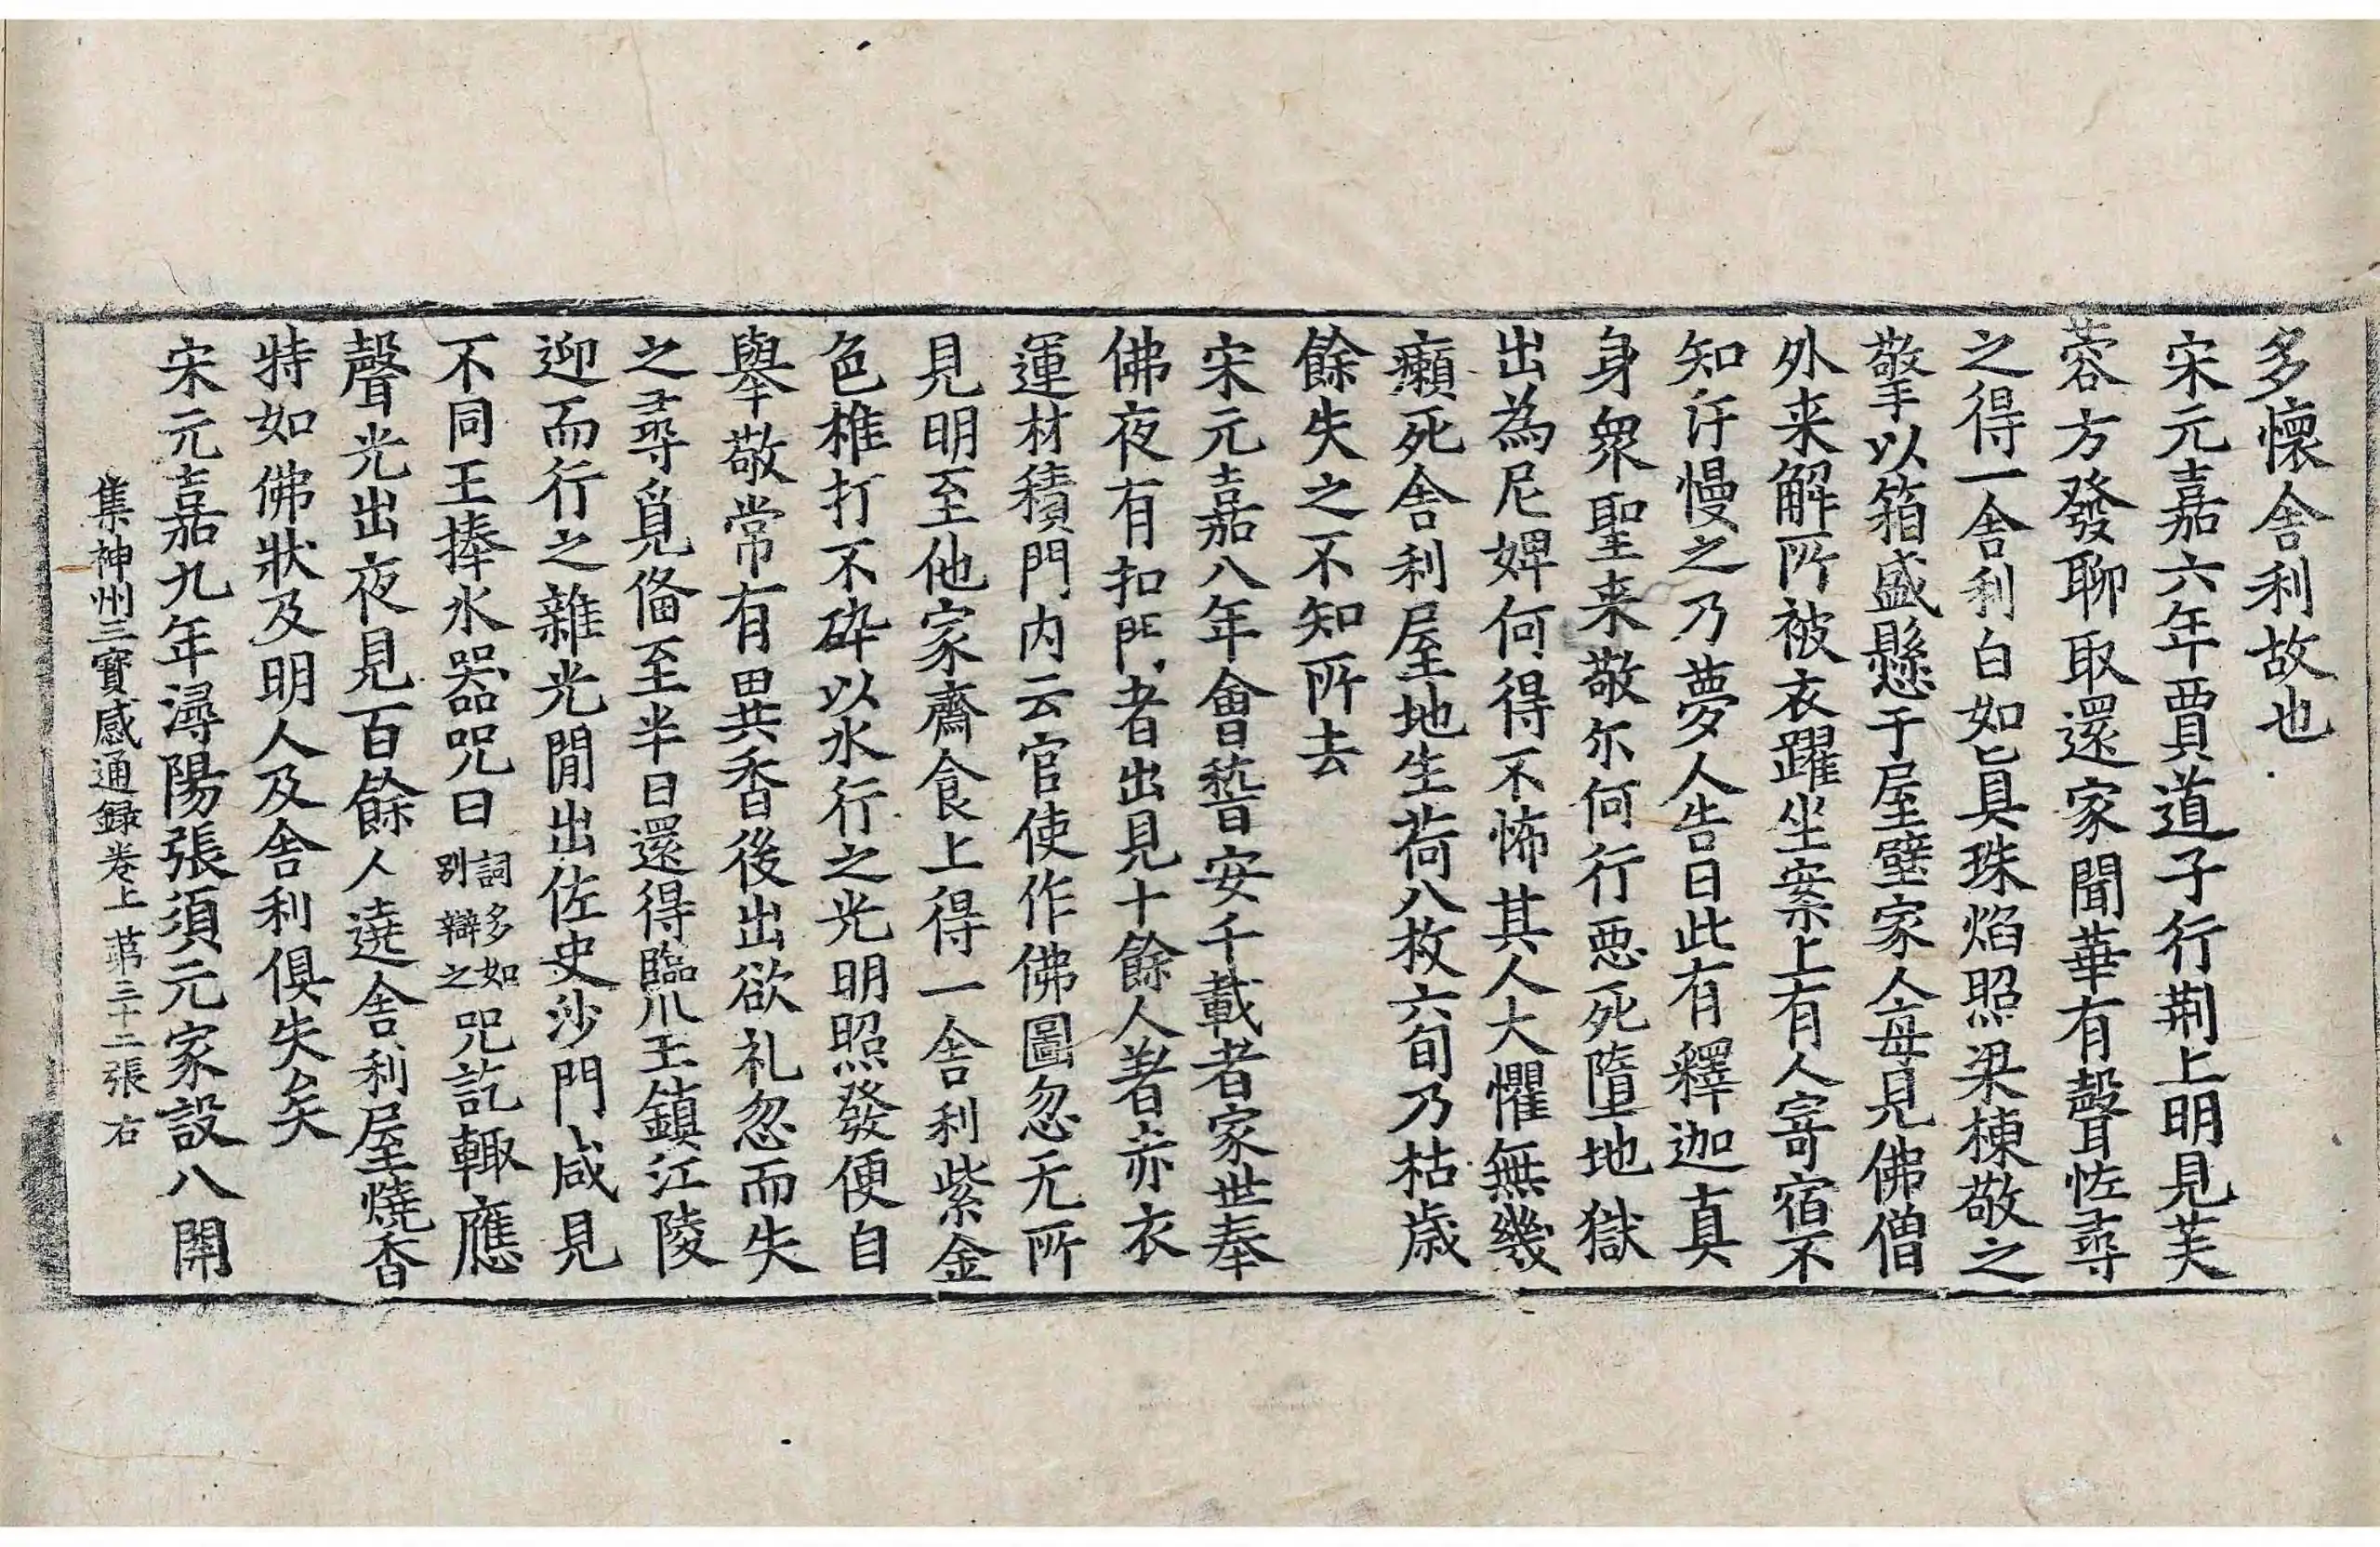 多懷舍利故也
宋元嘉六年賈道子行荆上明見芙
蓉方發聊取還家聞華有聲恠尋
之得一舍利白如真珠焰照梁棟敬之
擎以箱盛懸于屋壁家人每見佛僧
外来解所被衣躍坐案上有人寄宿不
知汙慢之乃夢人告曰此有釋迦真
身衆聖来敬尒何行惡死墮地獄
出為尼婢何得不怖其人大懼無幾
癩死舍利屋地生荷八枚六旬乃枯歲
餘失之不知所去
宋元嘉八年會嵆安千載者家世奉
佛夜有扣門者出見十餘人著赤衣
運材積門内云官使作佛圖忽无所
見明至他家齋食上得一舍利紫金
色椎打不碎以水行之光明照發便自
舉敬常有異香後出欲礼忽而失
之尋覓俻至半日還得臨川王鎮江陵
迎而行之雜光閒出佐史沙門咸見
不同王捧水器呪曰詞多如別辯之呪訖輙應
聲光出夜見百餘人遶舍利屋燒香
特如佛狀及明人及舍利俱失矣
宋元嘉九年潯陽張須元家設八關
集神州三寶感通録卷上 苐三十二張 右